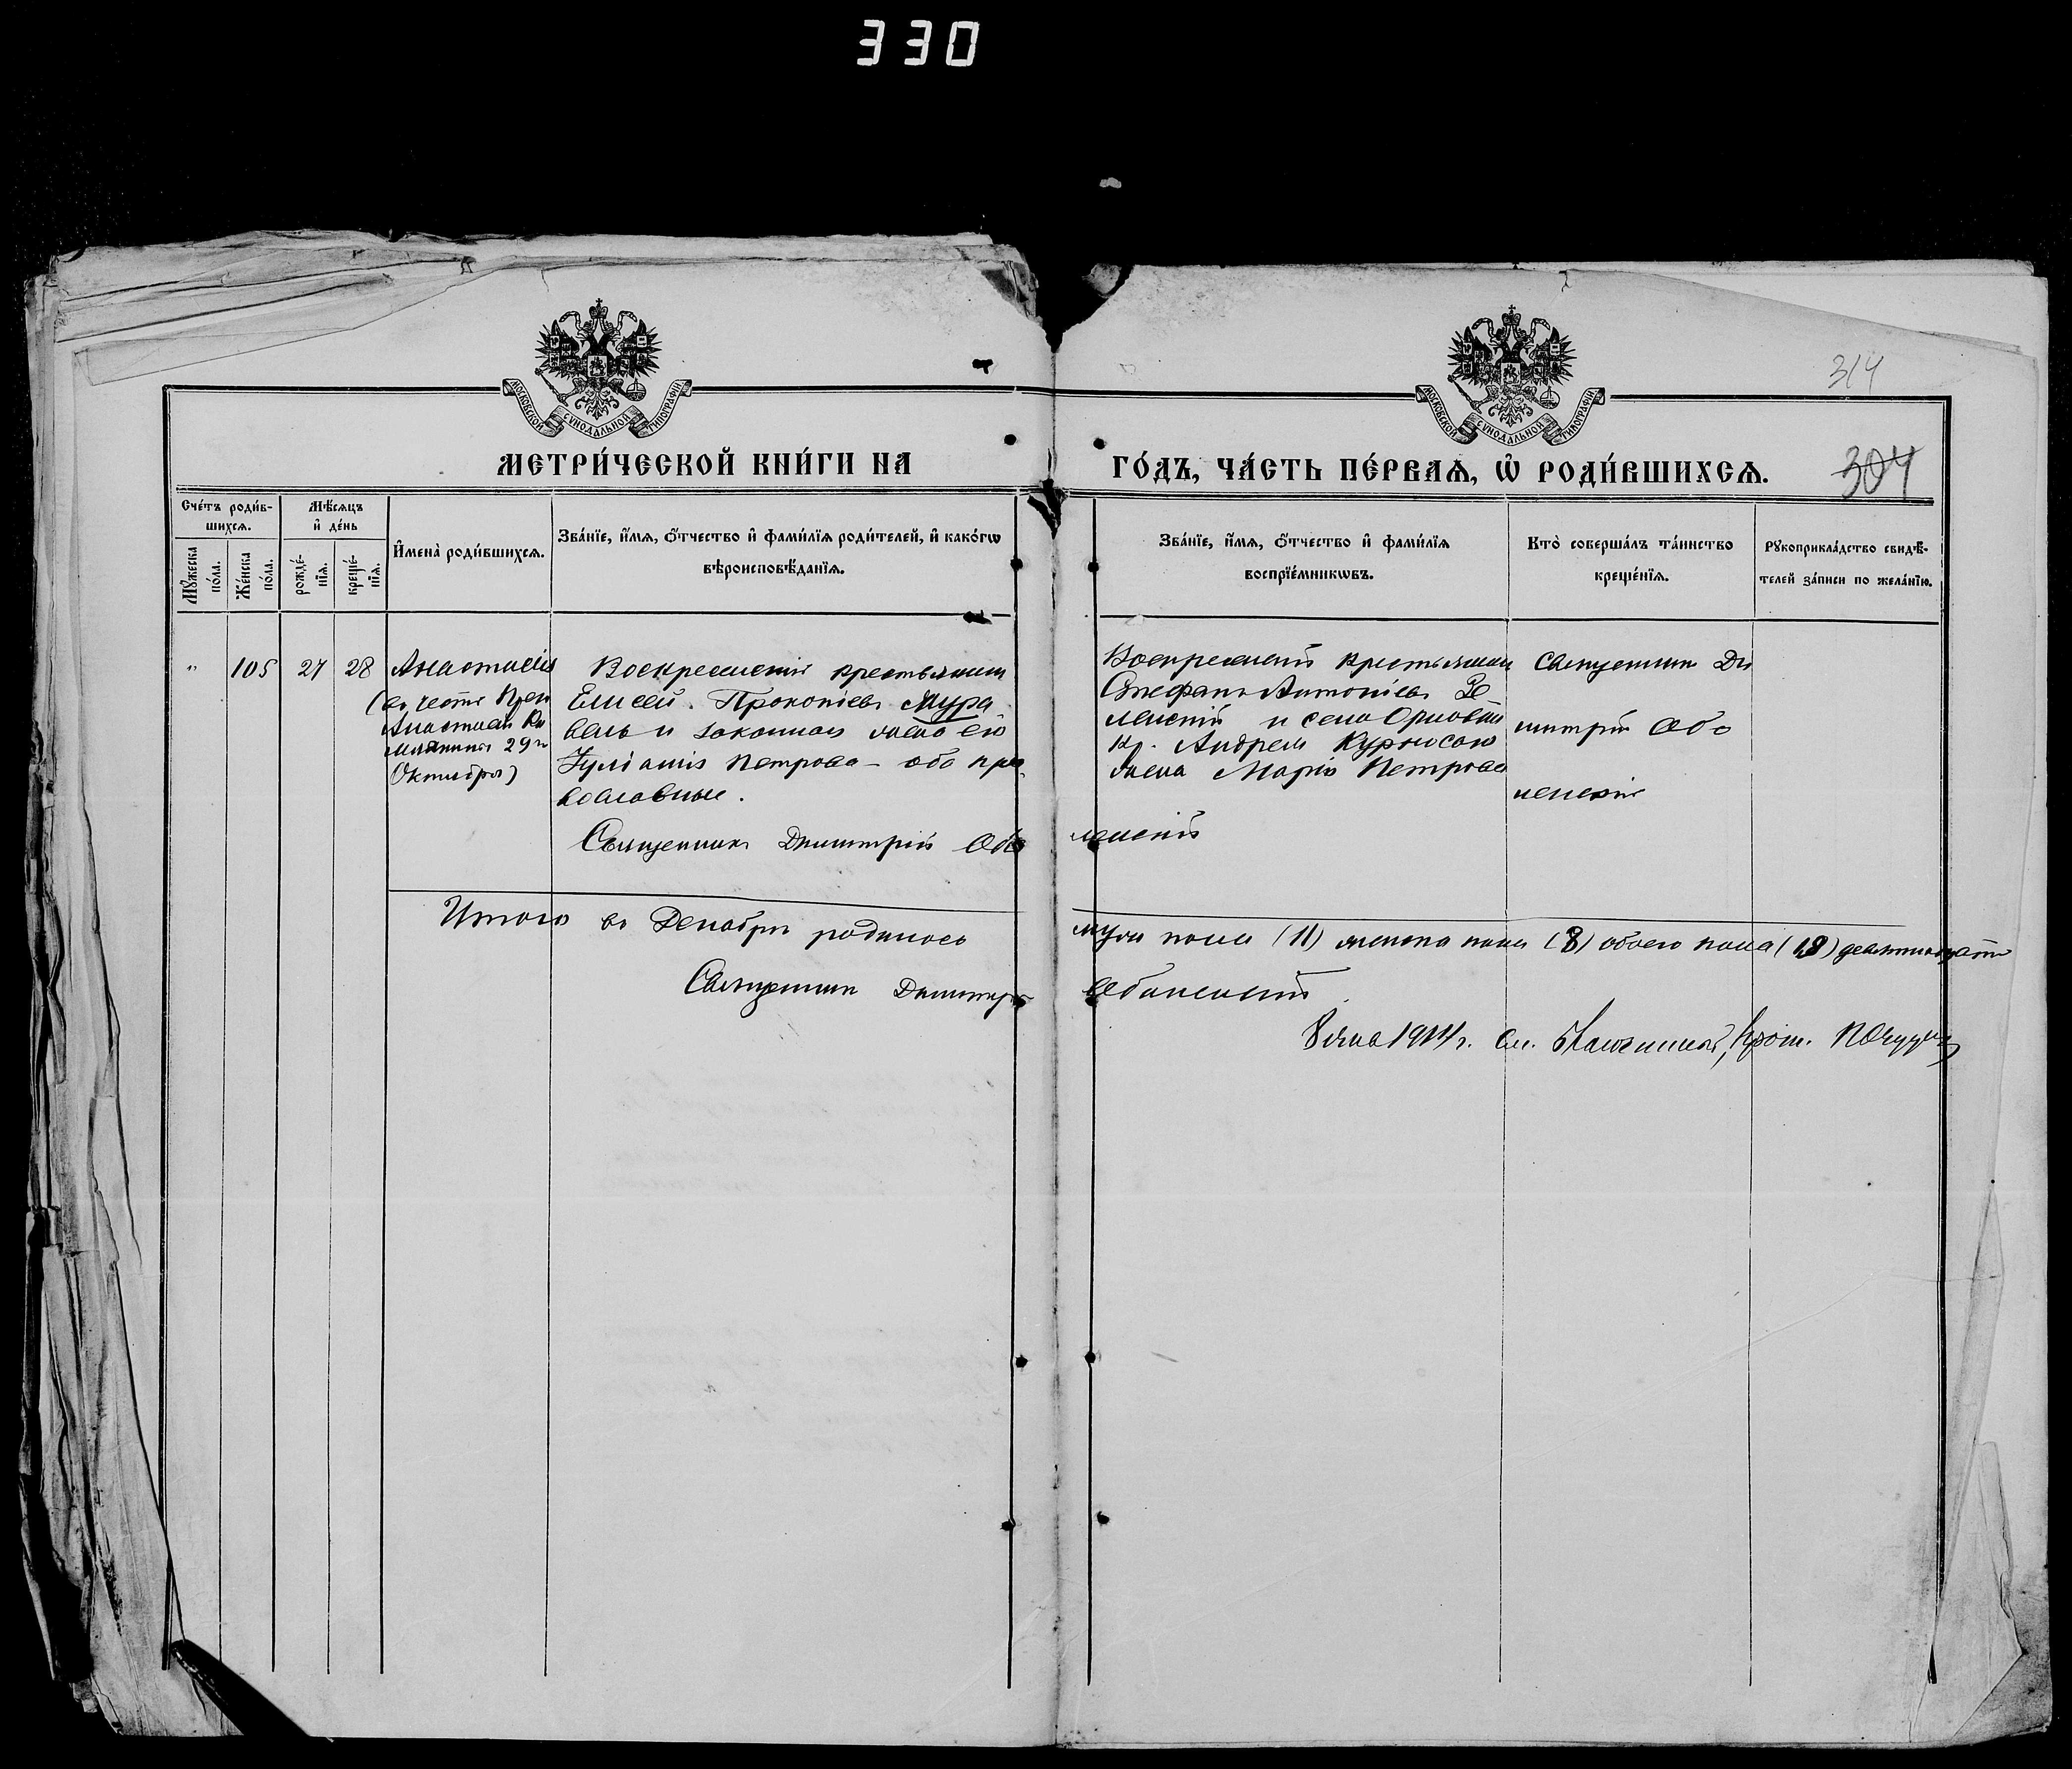 330
МОСКОВСКОЙ СѴНОДАЛЬНОЙ ТИПОГРАФІИ
МОСКОВСКОЙ СѴНОДАЛЬНОЙ ТИПОГРАФІИ
314
МЕТРИ́ЧЕСКОЙ КНИ́ГИ НА
ГО́ДЪ, ЧА́СТЬ ПЕ́РВАѦ, Ѡ҆ РОДИ́ВШИХСѦ.
304
Сче́тъ роди́в-
шихсѧ.
Мѣ́сѧцъ
и҆ де́нь
Мꙋ́жеска
по́ла.
Же́нска
по́ла.
рожде́-
нїѧ.
креще́-
нїѧ.
И҆мена̀ роди́вшихсѧ.
Зва́нїе, и҆́мѧ, ѻ҆́тчество и҆ фами́лїѧ роди́телей, и҆ како́гѡ
вѣроисповѣ́данїѧ.
Зва́нїе, и҆́мѧ, ѻ҆́тчество и҆ фами́лїѧ
воспрїе́мникѡвъ.
Кто̀ соверша́лъ та́инство
креще́нїѧ.
Рꙋкоприкла́дство свидѣ́-
телей за́писи по жела́нїю.
" 105 27 28
Анастасія
(въ честь Преп
Анастасіи Ри
млянины 29го
Октября)
Воскресенскій крестьянинъ
Елисей Прокопіевъ Мура
вель и законная жена его
Іуліанія Петрова – оба пра
вославные.
Священникъ Димитрій Обо
ленскій
Воскресенскій крестьянинъ
Стефанъ Антоніевъ Зе
ленскій и села
кр. Андрея
жена Марія Петрова
Священникъ Ди
митрій Обо
ленскій
Итого въ Декабрѣ родилось
муж пола (11) женска пола (8) обоего пола (19) девятнадцать
Священникъ Димитрій
Оболенскій
1914 г. Прот.